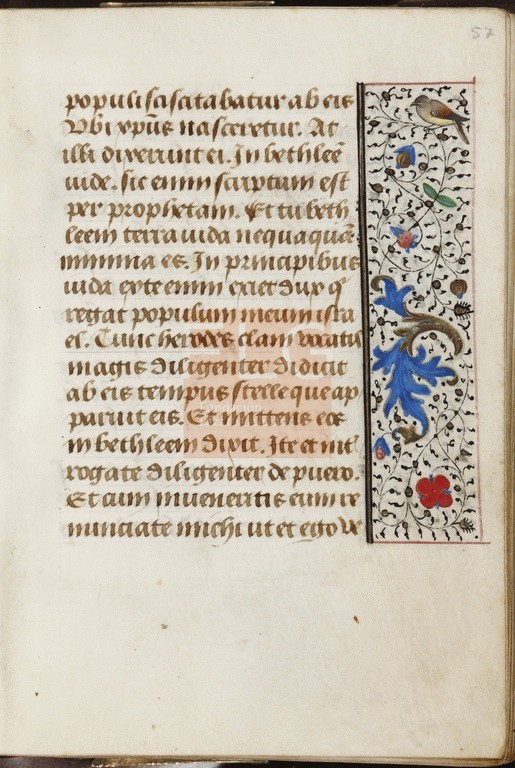 57
populi sciscitabatur ab eis
Vbi xp̄us nasceretur. At
illi dixerunt ei. In bethleē
iude. sic enim scriptum est
per prophetam. Et tu beth
leem terra iuda nequaquā
minima es. In principibus
iuda ex te enim exiet dux q̄
regat populum meum isra
el. Tunc herodes clam vocatis
magis diligenter didicit
ab eis tempus stelle que ap
paruit eis. Et mittens eos
in bethleem dixit. Ite et int̄
rogate diligenter de puero.
Et cum inueneritis eum re
nunciate michi ut et ego ve